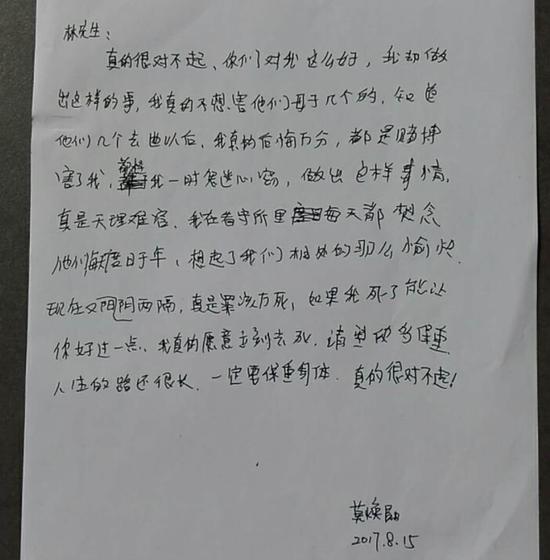 林先生：
真的很对不起、你们对我这么好，我却做
出这样的事，我真的不想害他们母子几个的，知道
他们几个去世以后，我真的后悔万分，都是赌博
害了我，我一时鬼迷心窍，做出这样事情，
真是天理难容、我在看守所里每天都想念
他们每度日于年，想起了我们相处的那么愉快
现在又阴阴两隔，真是罪该万死，如果我死了能让
你好过一点、我真的愿意立刻去死、请
保重
人生的路还很长、一定要保重身体、真的很对不起！
莫焕晶
2017.8.15